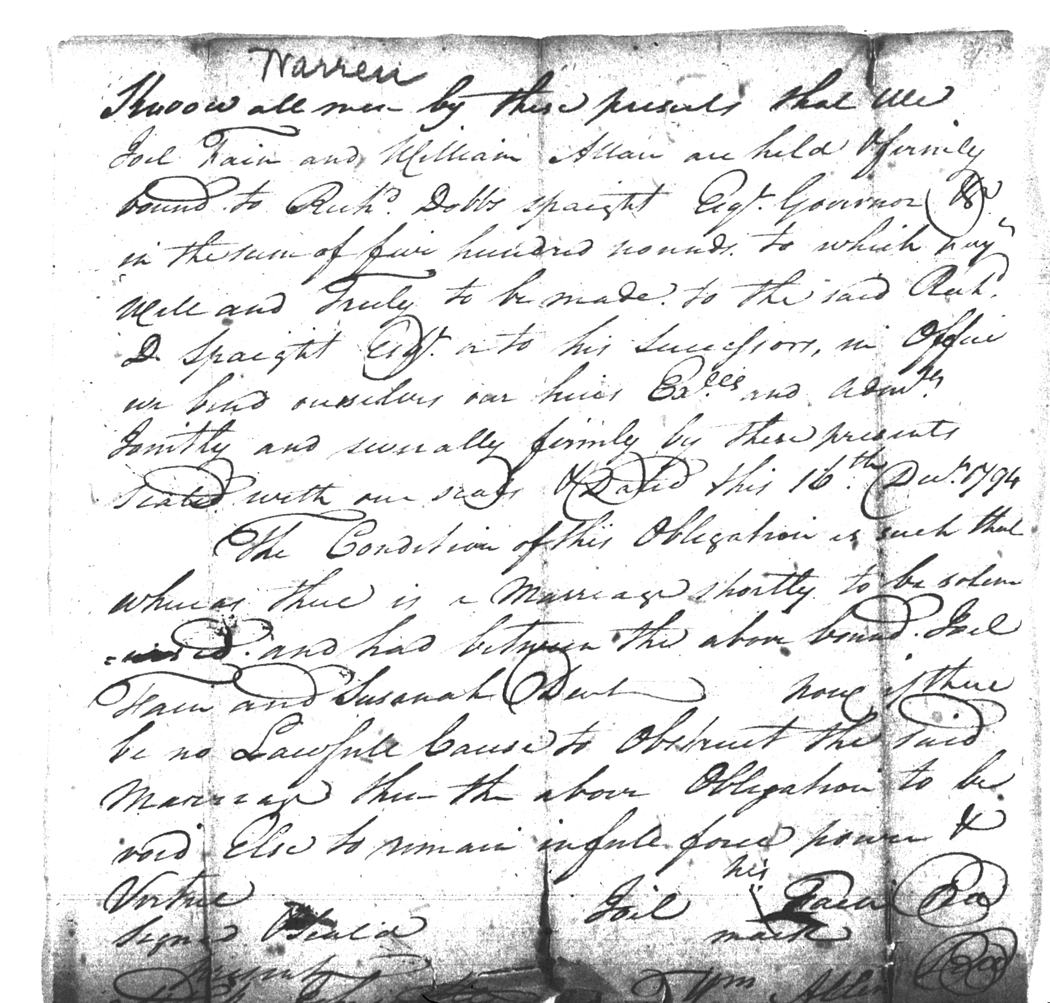 Warren
Know all men by these presents that We
Joel Fain and William Allan are held & firmly
bound to Richd. Dobbs spaight Esqr. Governor &c
in the sum of five hundred pounds. to which paymt
Well and Truly to be made. to the said Richd.
D. Spaight Esqr. or to his successors, in Office
we bind ourselves our heirs Exrs and Admrs
Jointly and severally firmly by these presents
Sealed with our seals & Dated this 16th Decr. 1794
The Condition of this Obligation is such that
whereas there is a Marriage shortly to be solem
=nized. and had between the above bound. Joel
Fain and Susanah Dent now if there
be no Lawfull Cause to Obstruct the said
Marriage then the above Obligation to be
void Else to remain in full force power &
Virtue
his
Joel Fain Seal
Signd & Seald
mark
present
Wm Allen Seal